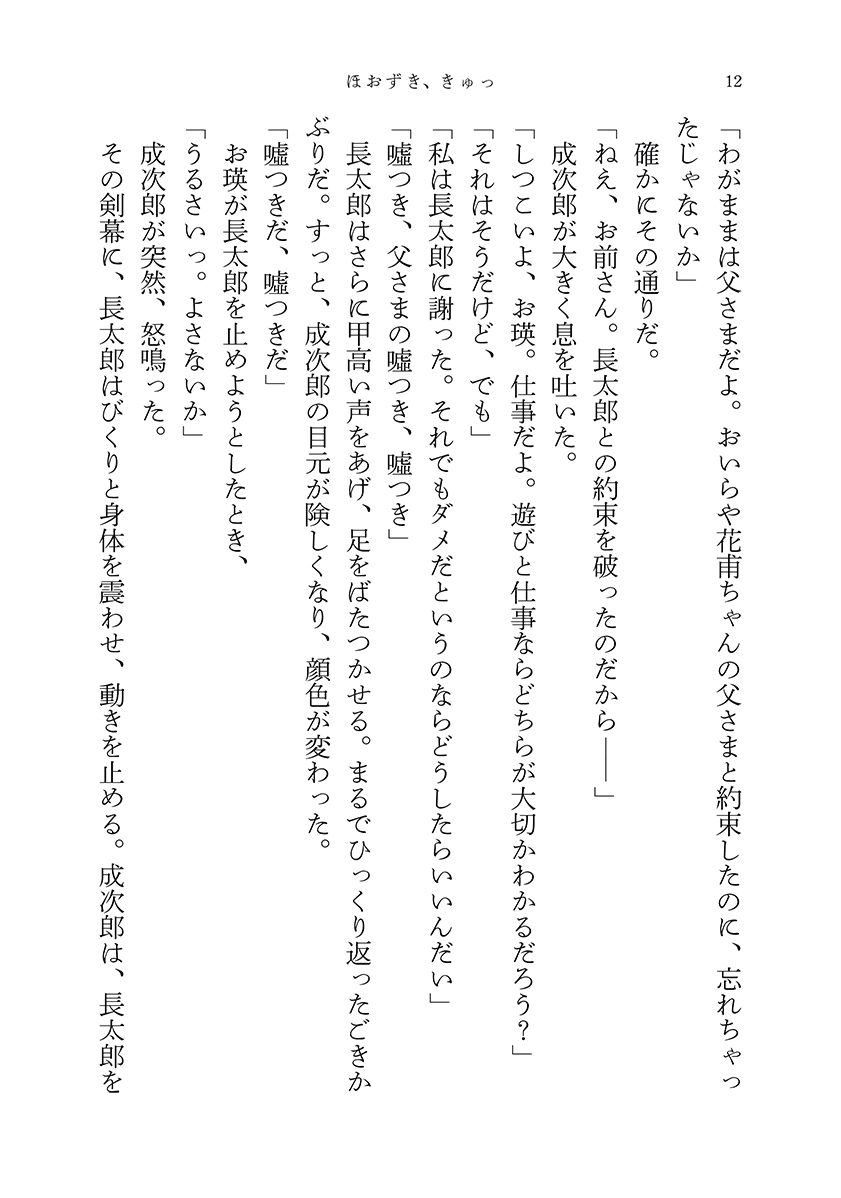 12
ほおずき、きゅっ
「わがままは父さまだよ。おいらや花甫ちゃんの父さまと約束したのに、忘れちゃっ
たじゃないか」
確かにその通りだ。
「ねえ、お前さん。長太郎との約束を破ったのだから――」
成次郎が大きく息を吐いた。
「しつこいよ、お瑛。仕事だよ。遊びと仕事ならどちらが大切かわかるだろう？」
「それはそうだけど、でも」
「私は長太郎に謝った。それでもダメだというのならどうしたらいいんだい」
「嘘つき、父さまの嘘つき、嘘つき」
長太郎はさらに甲高い声をあげ、足をばたつかせる。まるでひっくり返ったごきか
ぶりだ。すっと、成次郎の目元が険しくなり、顔色が変わった。
「嘘つきだ、嘘つきだ」
お瑛が長太郎を止めようとしたとき、
「うるさいっ。よさないか」
成次郎が突然、怒鳴った。
その剣幕に、長太郎はびくりと身体を震わせ、動きを止める。成次郎は、長太郎を